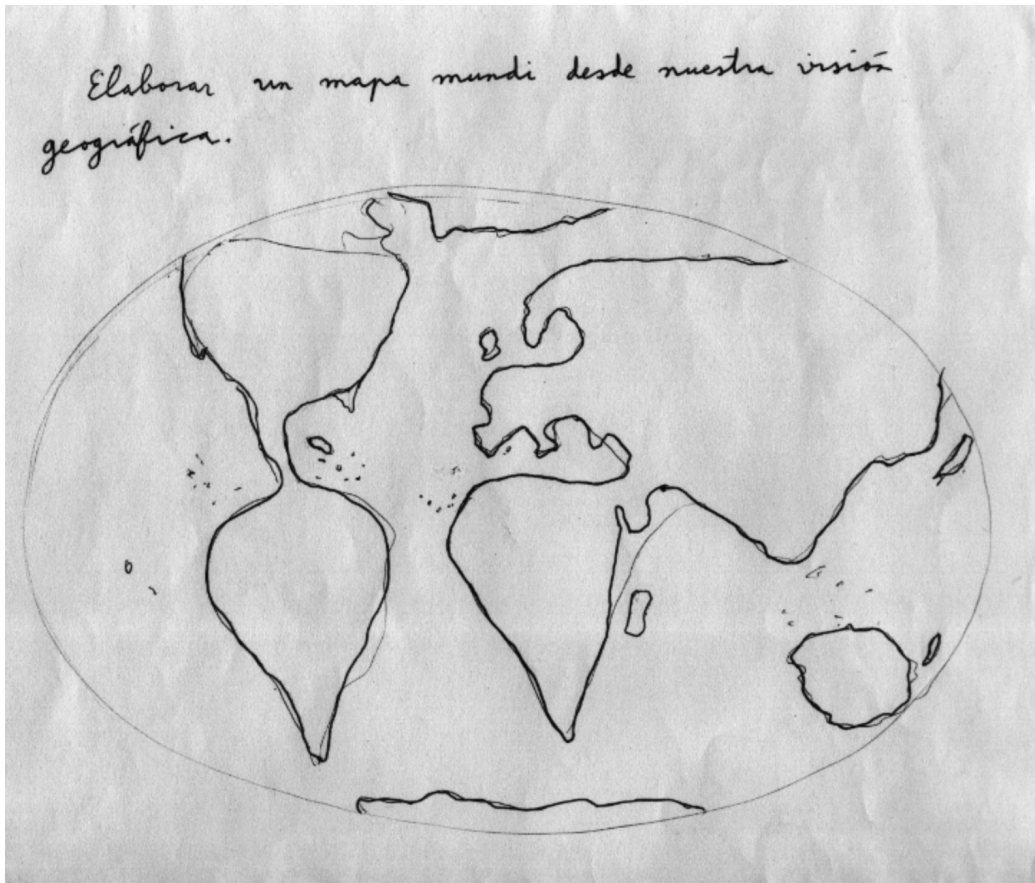 Elaborar un mapa mundi desde nuestra visión
geográfica.